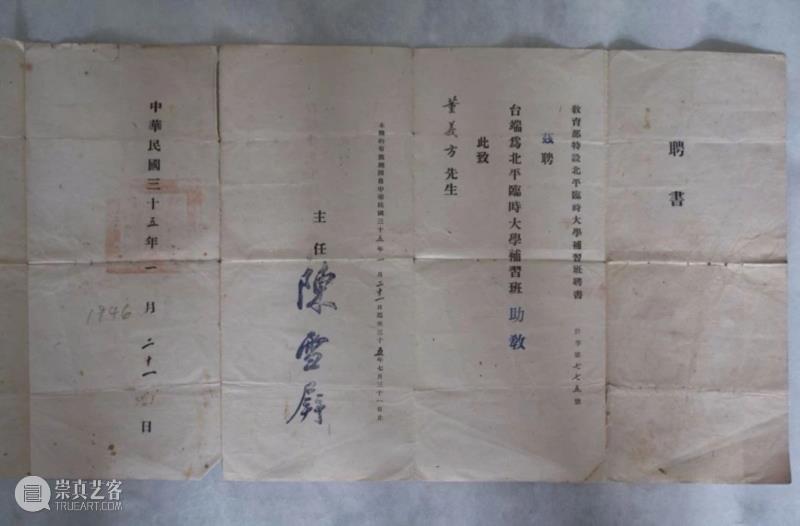 聘書
教育部特設北平臨時大學補習班聘書
字第七七五號
茲聘
台端為北平臨時大學補習班助教
此致
董義方先生
本聘約有效期間自中華民國三十五年一月二十一日起至三十五年七月三十一日止
主任陳雪屏
中華民國三十五年一月二十一日
1946
崇真艺客
TRUEART.COM